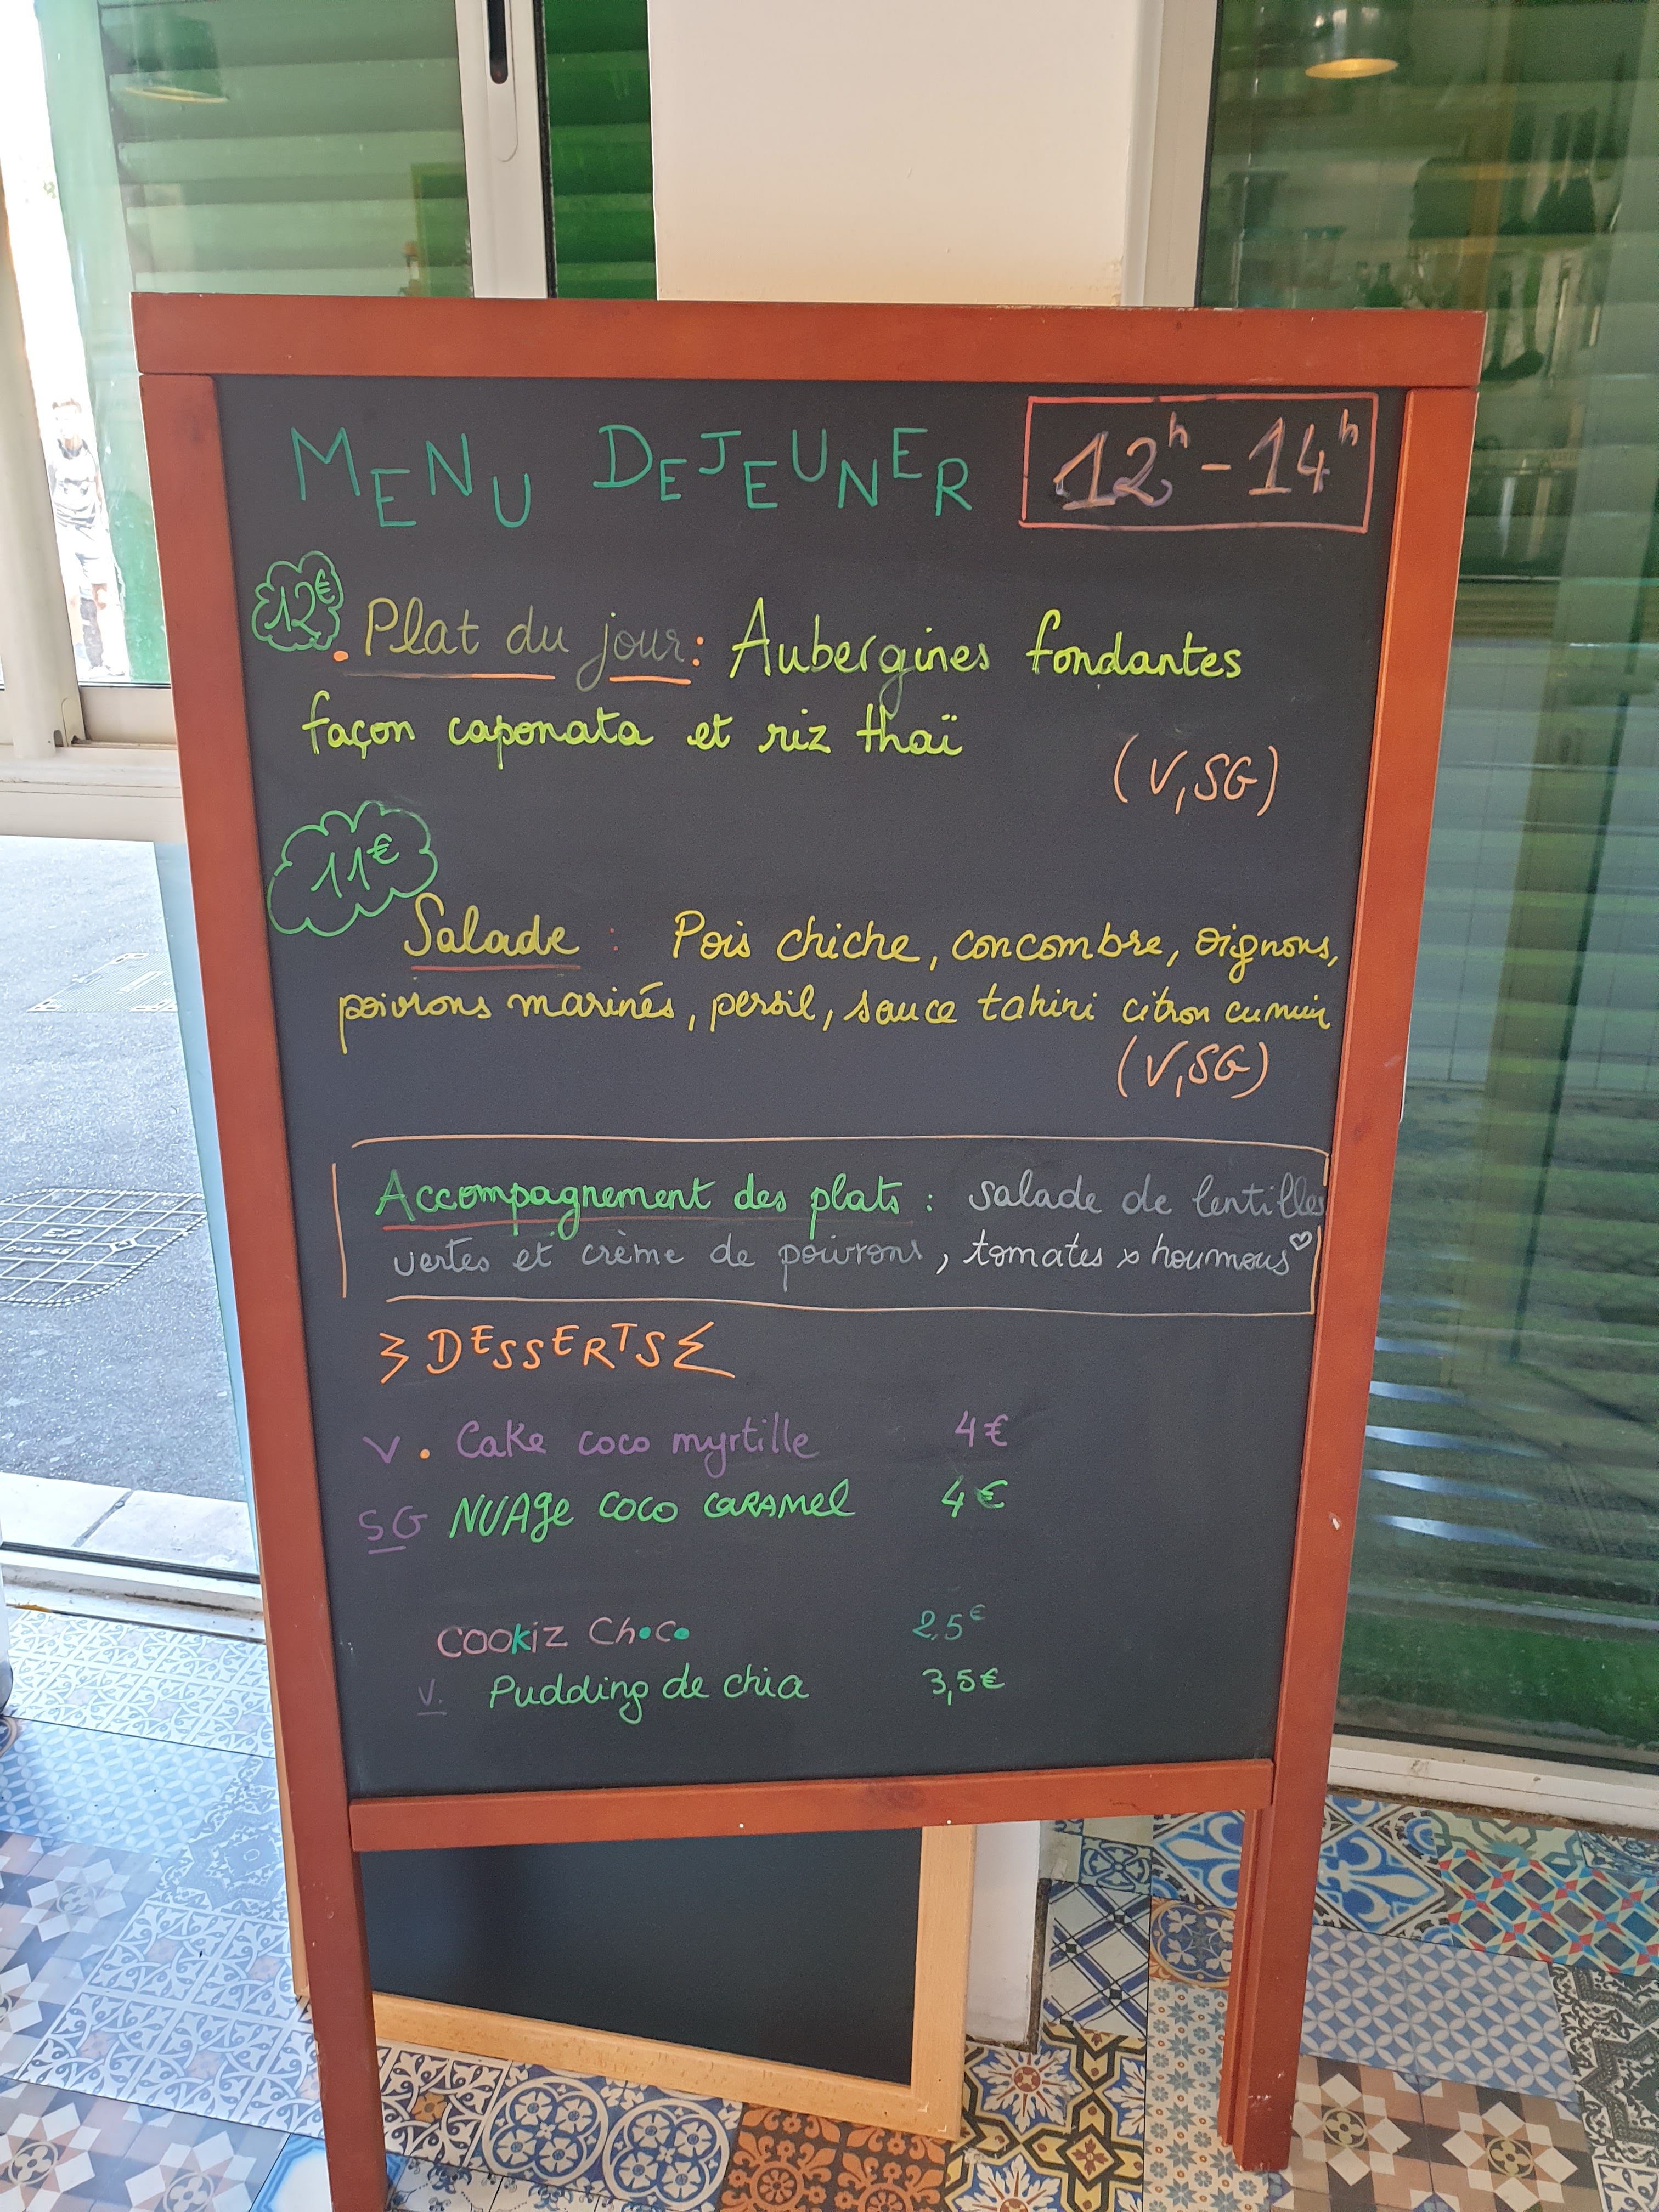 MENU DEJEUNER 12h - 14h
12€
. Plat du jour : Aubergines fondantes
façon caponata et riz thaï
(V, SG)
11€
Salade : Pois chiche, concombre, oignons,
poivrons marinés, persil, sauce tahini citron cumin
(V, SG)
Accompagnement des plats : salade de lentilles
vertes et crème de poivrons, tomates x houmous ♡
DESSERTS
V . Cake coco myrtille 4€
SG NUAge coco CARAMel 4€
COOKiZ ChoCo 2,5€
V. Pudding de chia 3,5€